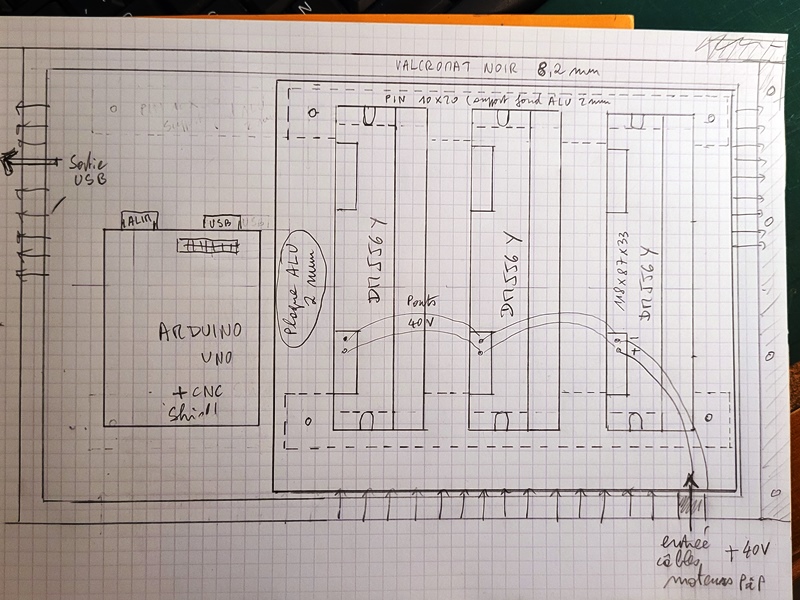 VALCROMAT NOIR 8,2 mm
PIN 10x20 (support fond ALU 2mm
Sortie
USB
ALIM
USB
Plaque ALU
2 mm
DM556Y
DM556Y
118x87x33
DM556Y
Ponts
40V
- +
ARDUINO
UNO
+ CNC
Shield
entrée
câbles
moteurs PàP
+ 40V